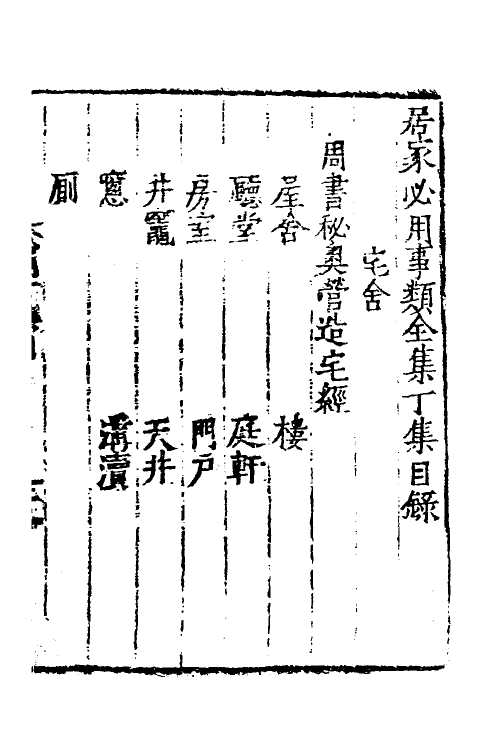 居家必用事類全集丁集目錄
宅舍
周書秘奧營造宅經
屋舍 樓
廳堂 庭軒
房室 門戶
井竈 天井
窻 溝瀆
厠